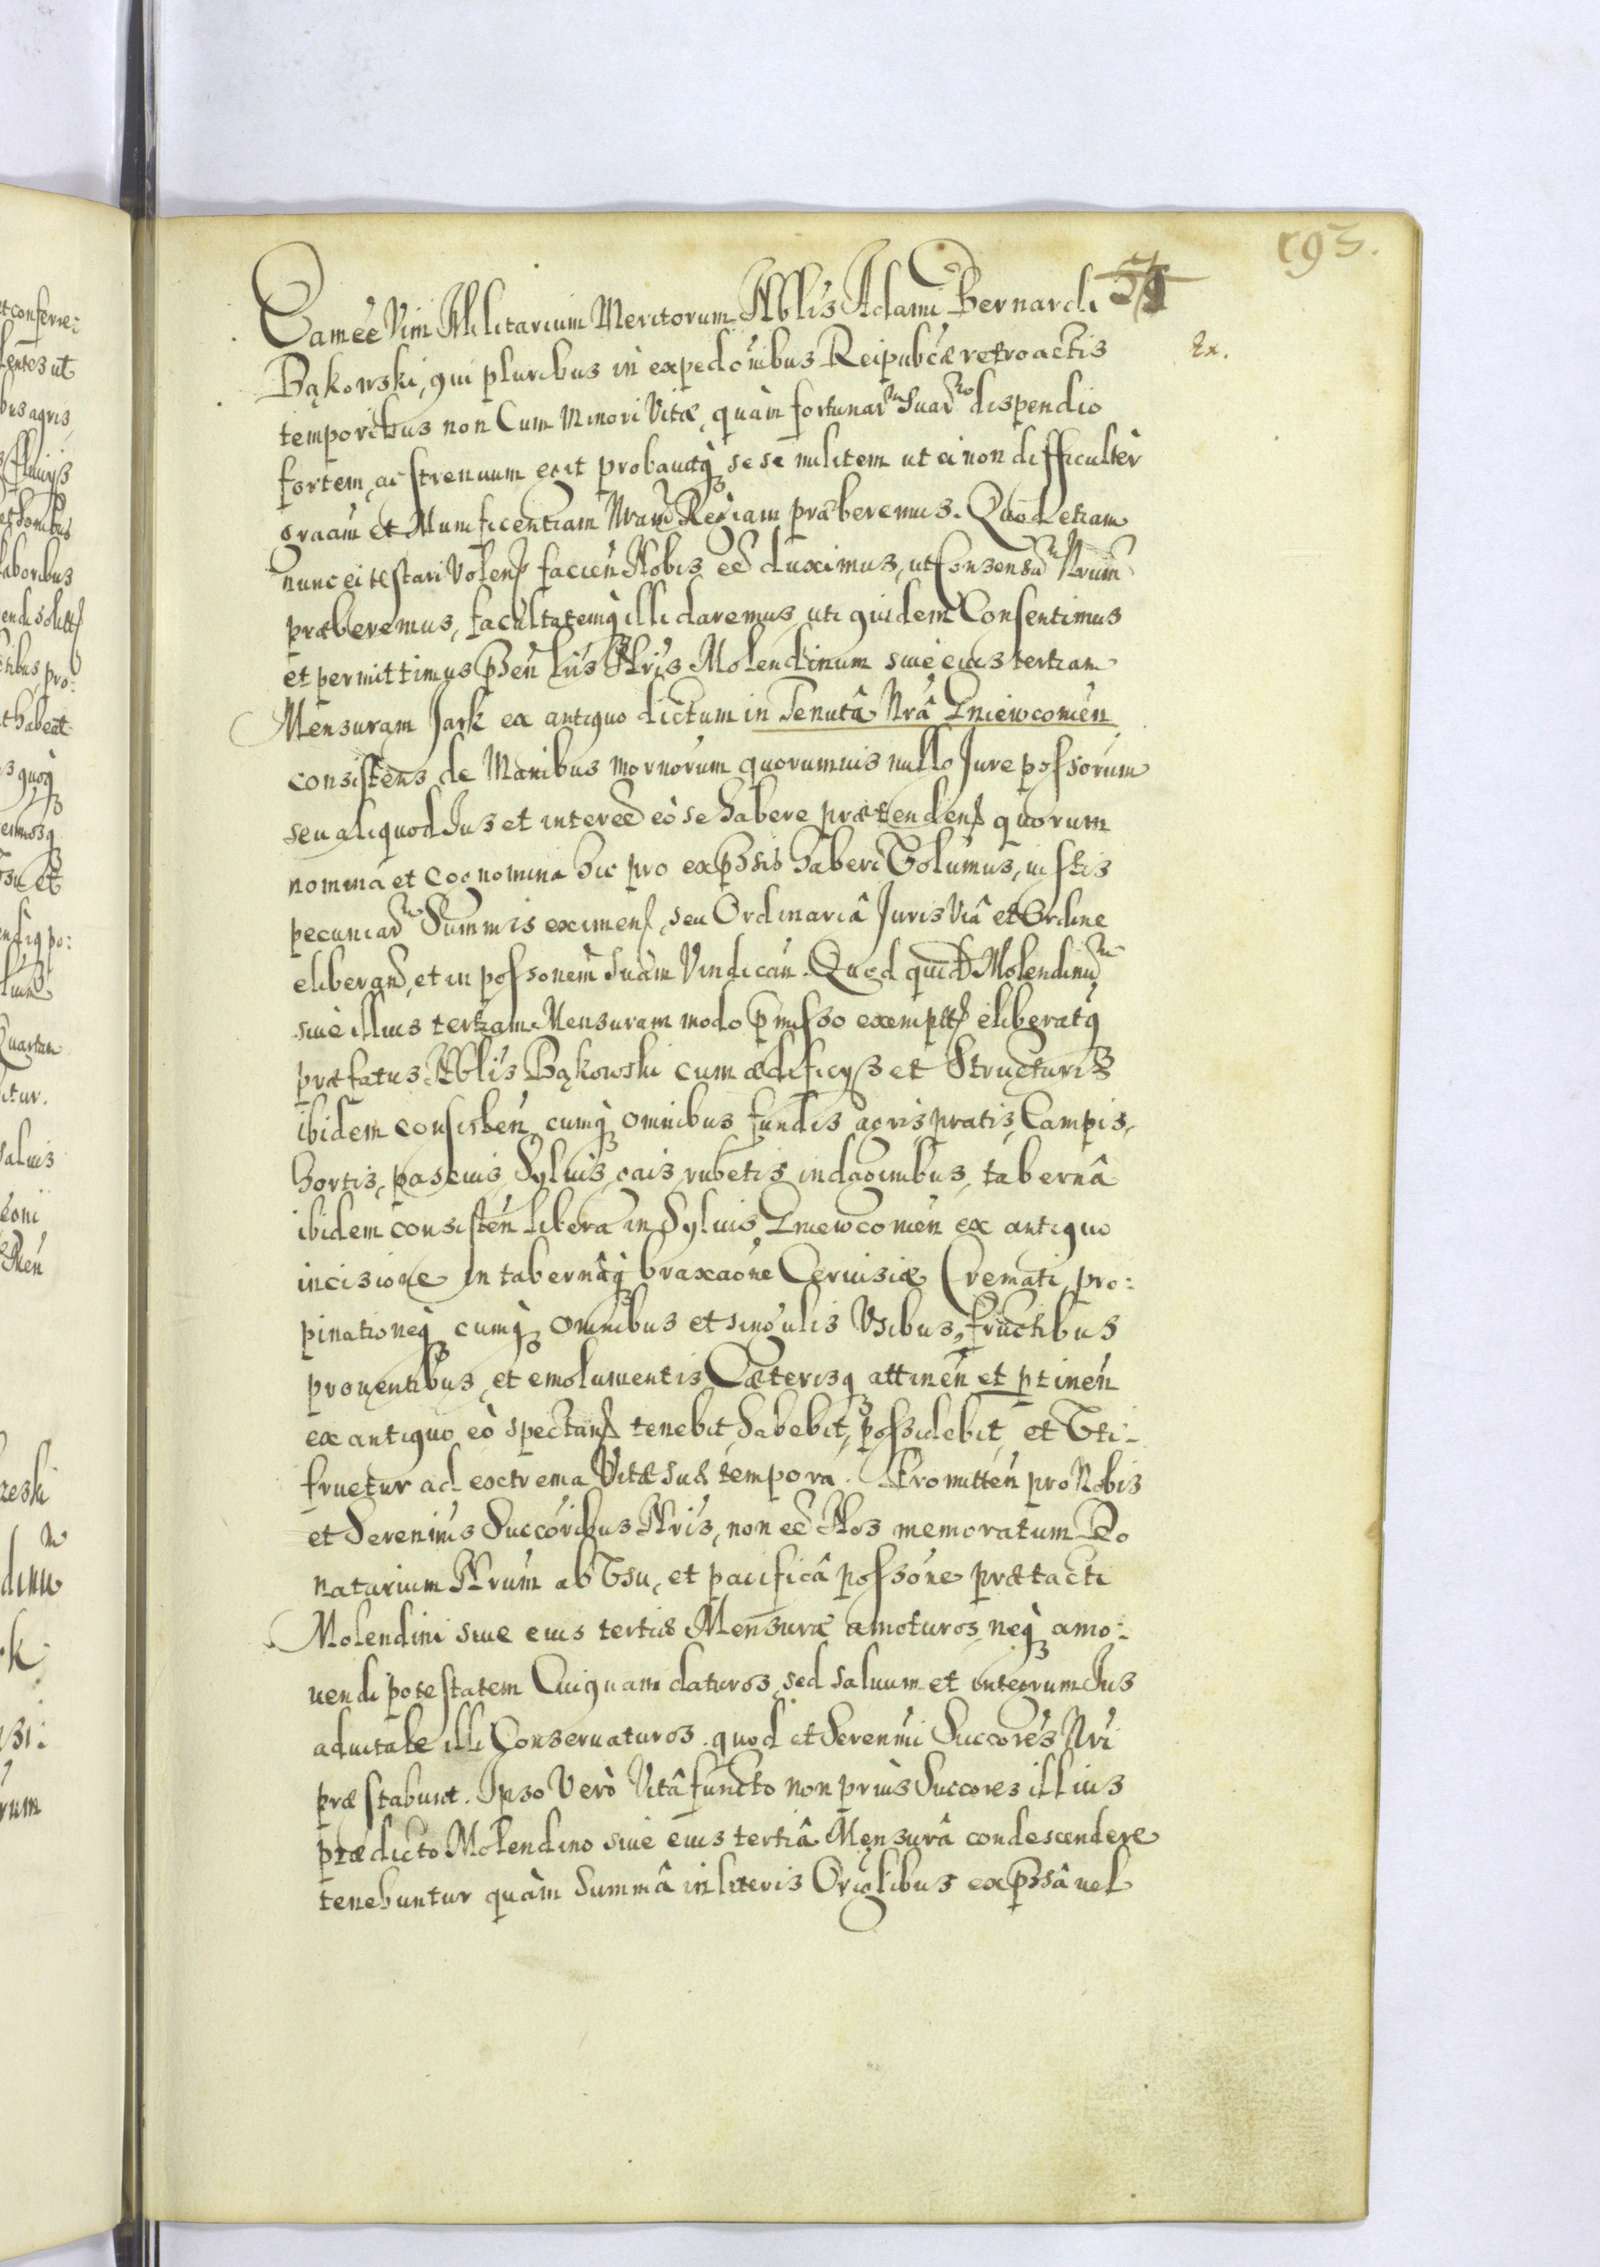 193.
Eam ee Vim Militarium Meritorum Nblis Adami Bernardi
Bąkowski, qui pluribus in expedonibus Reipubcæ retroactis
Ex.
temporibus non Cum Minori Vitæ, quàm fortunar̃ suar̃ dispendio
fortem, ac strenuum egit probauitq sese militem ut ei non difficultèr
graam et Munificentiam Nram Regiam præberemus. Quod etiam
nunc ei testari Volen facien Nobis eẽ duximus, ut Consensu Nrum
præberemus, facultatemq illi daremus, uti quidem Consentimus
et permittimus psen lris Nris Molendinum siuè eius tertiam
Mensuram Jark ex antiquo dictum in Tenutâ Nrâ Gniewcomen
consistens de Manibus mornorum quorumuis nullo Jure possorum
seu aliquod Jus et interee eò se habere prætenden quorum
nomina et cognomina hic pro expssis haberi Volumus, iustis
pecuniar̃ Summis eximen, seu Ordinariâ Juris Viâ et Ordine
eliberand, et in possonem suam Vindican. Quod quid Molendinu
siuè illius tertiam Mensuram modo pmisso exempt eliberatq
præfatus Nblis Bąkowski cum ædificijs et Structuris
ibidem consisten cumq omnibus fundis agris pratis, Campis,
hortis, pascuis, Syluis, gais, rubetis, indaginibus, tabernâ
ibidem consisten libera in Syluis Gniewcomen ex antiquo
incisione in tabernâq braxaone Ceruisiæ Cremati, pro:
pinationeq cumq omnibus et singulis Vsibus, fructibus
prouentibus, et emolumentis Cæterisq attinen et ptinen
ex antiquo eò spectan tenebit, habebit, possidebit, et Vti:
fruetur ad extrema Vitæ suæ tempora. Promitten pro Nobis
et Serenmis Succoribus Nris, non eẽ Nos memoratum Do
natarium Nrum ab Vsu, et pacificâ possone prætacti
Molendini siue eius tertiæ Mensuræ amoturos, neq amo:
uendi potestatem Cuiquam daturos, sed saluum et integrum Jus
aduitale illi Conseruaturos. quod et Serenmi Succores Nri
præstabunt. Ipso Verò Vitâ functo non priùs Succores illius
prædicto Molendino siuè eius tertiâ Mensurâ condescendere
tenebuntur quàm Summâ in literis Origlibus expssâ uel